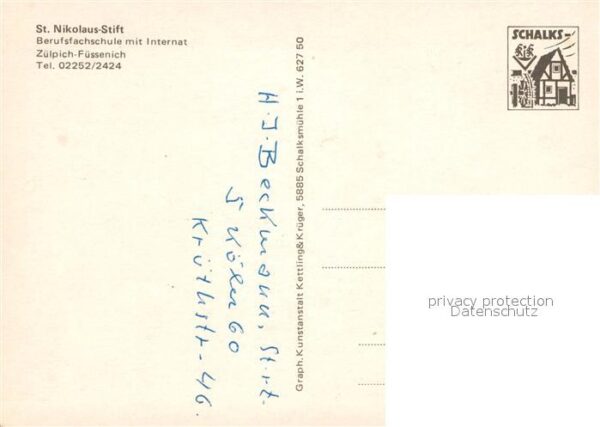 St. Nikolaus-Stift
Berufsfachschule mit Internat
Zülpich-Füssenich
Tel. 02252/2424
H.J. Beckmann, St.rt.
5 Köln 60
Krüthstr-46.
Graph. Kunstanstalt Kettling & Krüger, 5885 Schalksmühle 1 i.W. 627 50
SCHALKS-
privacy protection
Datenschutz